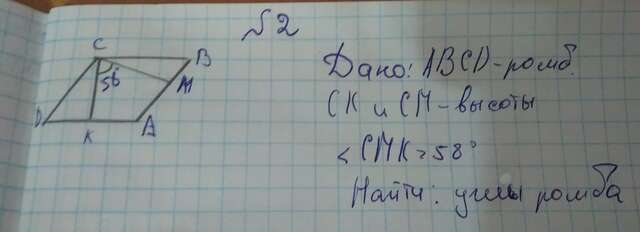 №2
C
B
56
M
D
K
A
Дано: ABCD-ромб.
CK и CM-высоты
< CMK = 58°
Найти: углы ромба